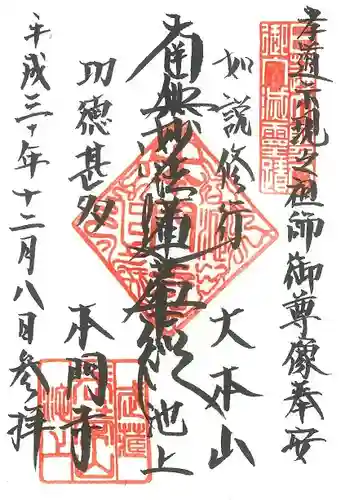 寿道示現之祖師御尊像奉安
如説修行 大本山
南無妙法蓮華経 池上
功徳甚多 本門寺
平成三十年十二月八日参拝